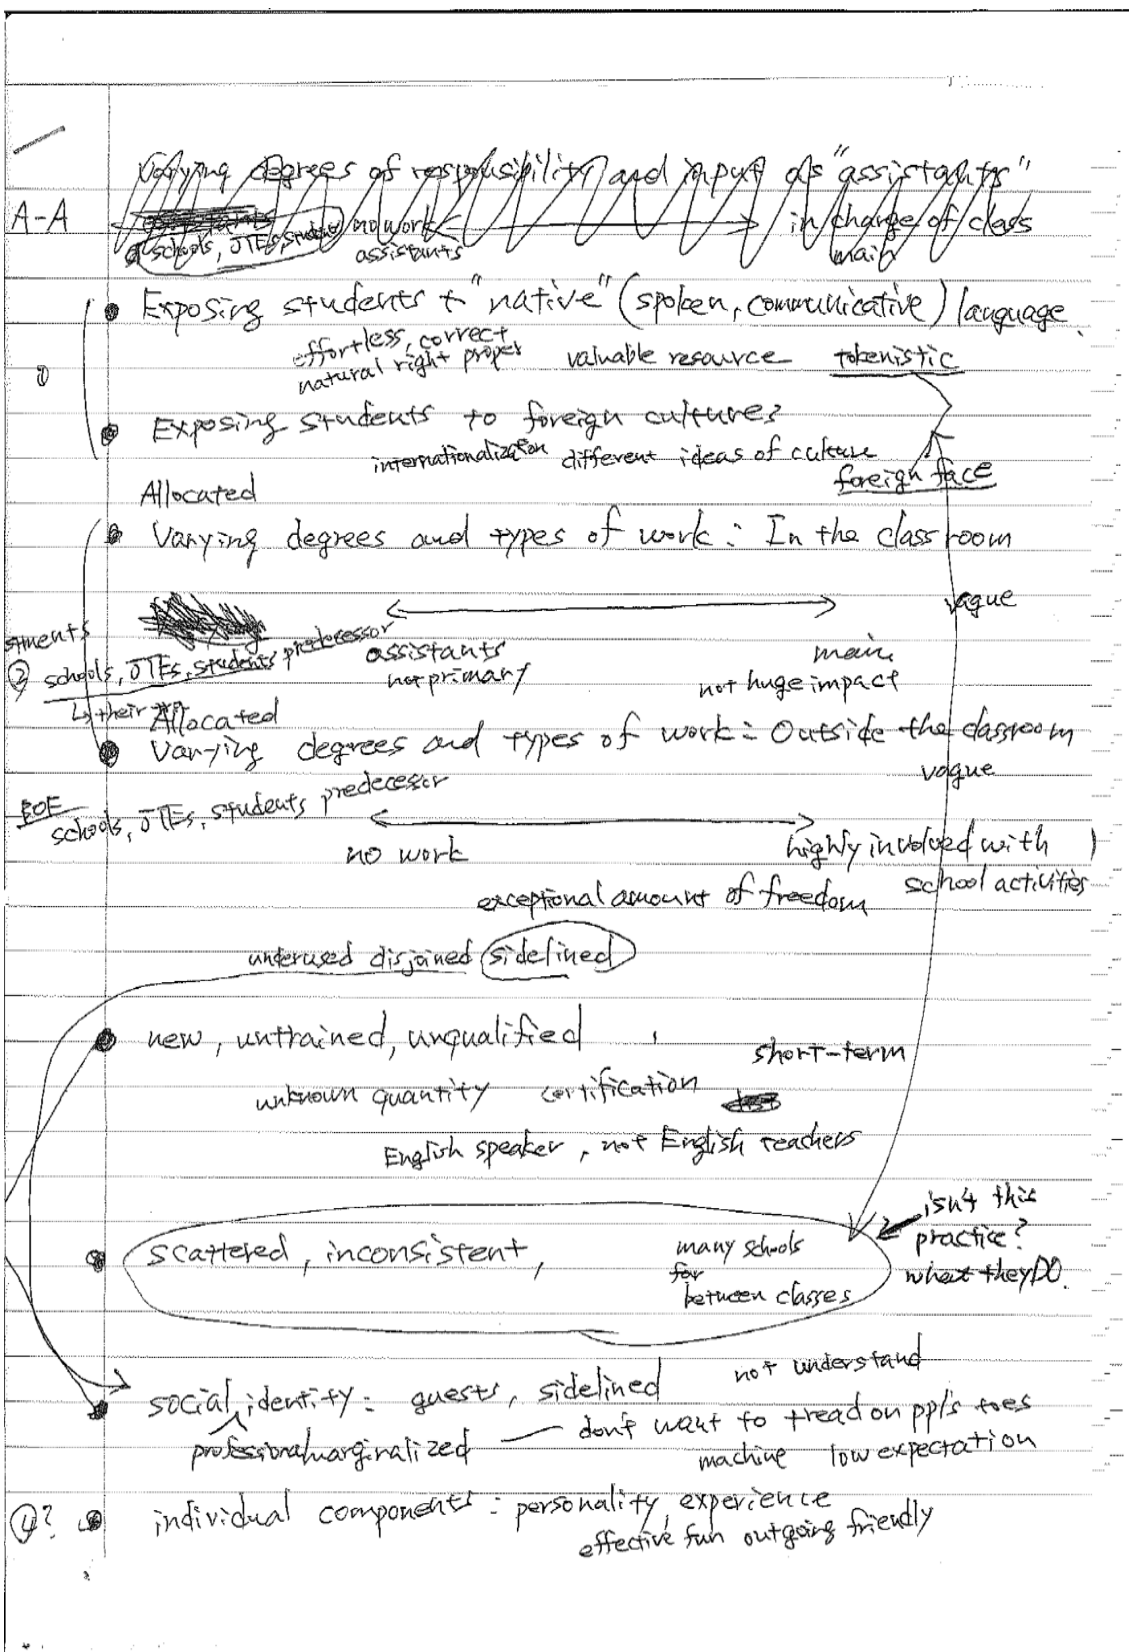 Varying degrees of responsibility and input as "assistants"
A-A
no work ⟷ in charge of class
schools, JTEs, students
assistants
main
Exposing students t "native" (spoken, communicative) language
effortless, correct
natural right proper
valuable resource
tokenistic
Exposing students to foreign cultures
internationalization
different ideas of culture
foreign face
Allocated
Varying degrees and types of work : In the classroom
vague
②
schools, JTEs, students predecessor
↳ their
assistants
not primary
main
not huge impact
Allocated
Varying degrees and types of work : Outside the classroom
vague
BOE
schools, JTEs, students predecessor
no work
highly involved with
school activities
exceptional amount of freedom
underused disjoined sidelined
new, untrained, unqualified
short-term
unknown quantity certification
English speaker, not English teachers
isn't this
practice?
what they DO.
scattered, inconsistent,
many schools
for
between classes
not understand
social identity : guests, sidelined
professional marginalized — don't want to tread on ppl's toes
machine low expectation
④?
individual components : personality, experience
effective fun outgoing friendly